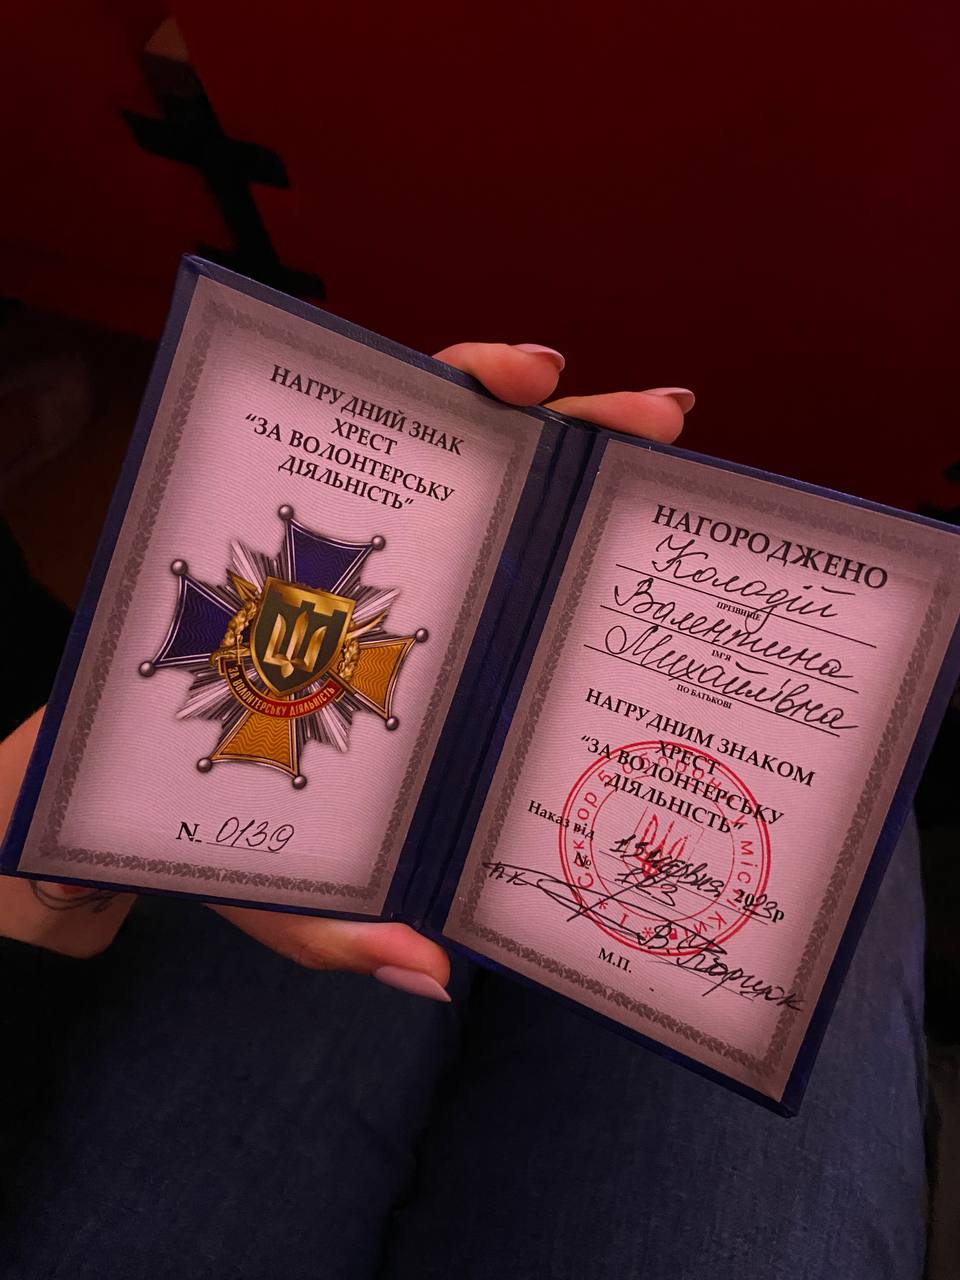 НАГРУДНИЙ ЗНАК
ХРЕСТ
“ЗА ВОЛОНТЕРСЬКУ
ДІЯЛЬНІСТЬ”
ЗА ВОЛОНТЕРСЬКУ ДІЯЛЬНІСТЬ
N 0139
НАГОРОДЖЕНО
Колодій
ПРІЗВИЩЕ
Валентина
ІМ'Я
Михайлівна
ПО БАТЬКОВІ
НАГРУДНИМ ЗНАКОМ
ХРЕСТ
“ЗА ВОЛОНТЕРСЬКУ
ДІЯЛЬНІСТЬ”
Наказ від 15 червня 2023р
№ 123
М.П.